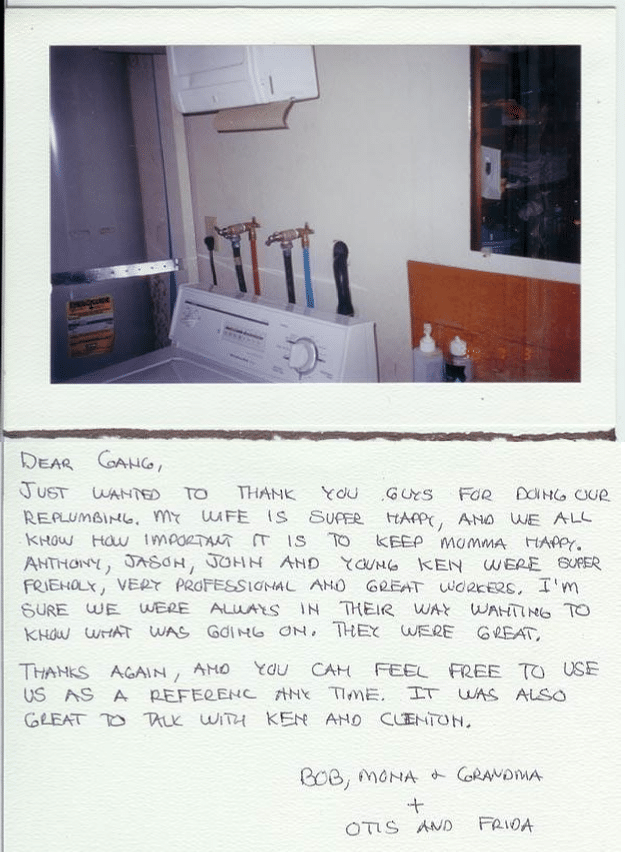 DEAR GANG,
JUST WANTED TO THANK YOU GUYS FOR DOING OUR
REPLUMBING. MY WIFE IS SUPER HAPPY, AND WE ALL
KNOW HOW IMPORTANT IT IS TO KEEP MOMMA HAPPY.
ANTHONY, JASON, JOHN AND YOUNG KEN WERE SUPER
FRIENDLY, VERY PROFESSIONAL AND GREAT WORKERS. I'M
SURE WE WERE ALWAYS IN THEIR WAY WANTING TO
KNOW WHAT WAS GOING ON. THEY WERE GREAT.
THANKS AGAIN, AND YOU CAN FEEL FREE TO USE
US AS A REFERENC ANY TIME. IT WAS ALSO
GREAT TO TALK WITH KEN AND CLENTON.
BOB, MONA & GRANDMA
+
OTIS AND FRIDA